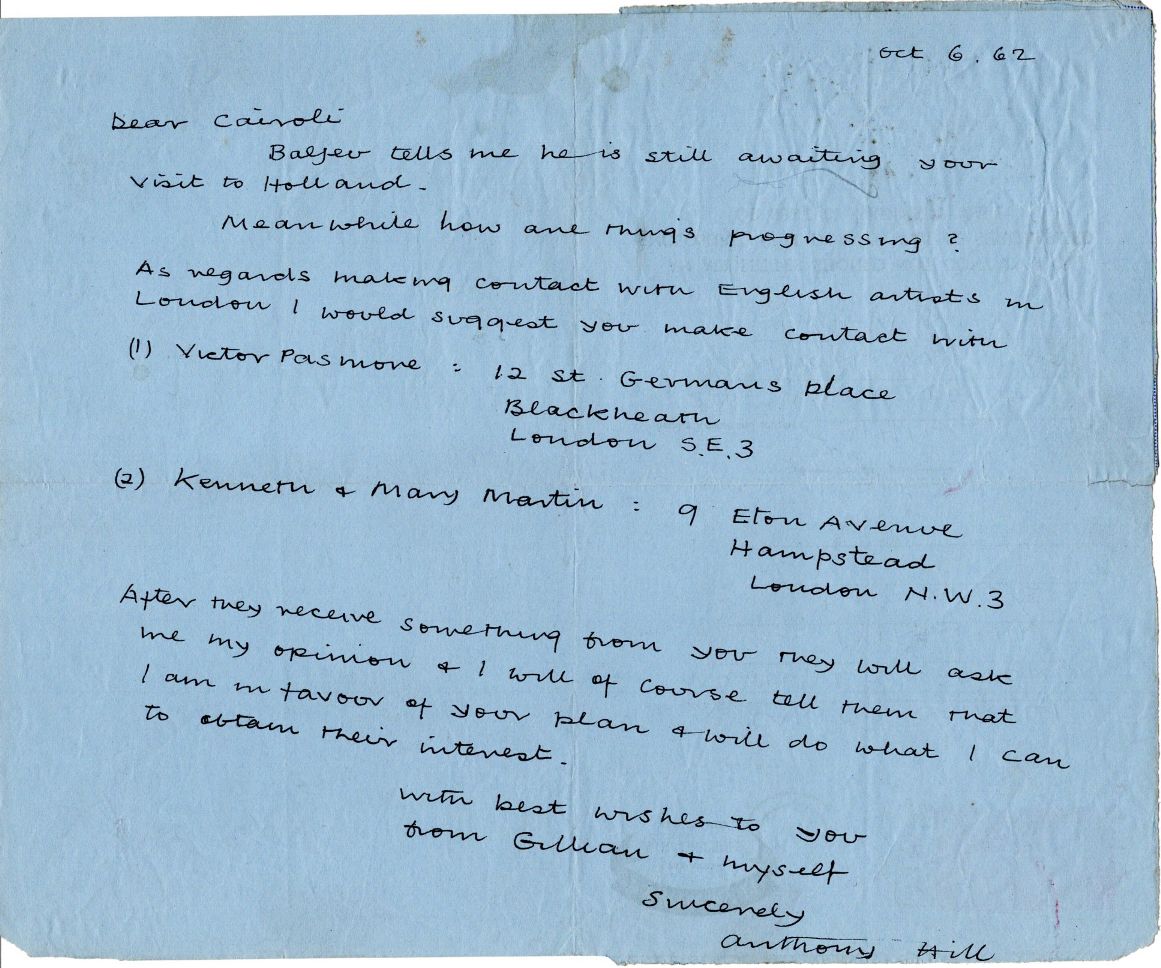 Oct 6. 62
Dear Cairoli
Baljeu tells me he is still awaiting your
visit to Holland.
Meanwhile how are things progressing?
As regards making contact with English artists in
London I would suggest you make contact with
(1) Victor Pasmore : 12 St. Germans place
Blackheath
London S.E.3
(2) Kenneth & Mary Martin : 9 Eton Avenue
Hampstead
London N.W.3
After they receive something from you they will ask
me my opinion & I will of course tell them that
I am in favour of your plan & will do what I can
to obtain their interest.
with best wishes to you
from Gillian & myself
Sincerely
Anthony Hill